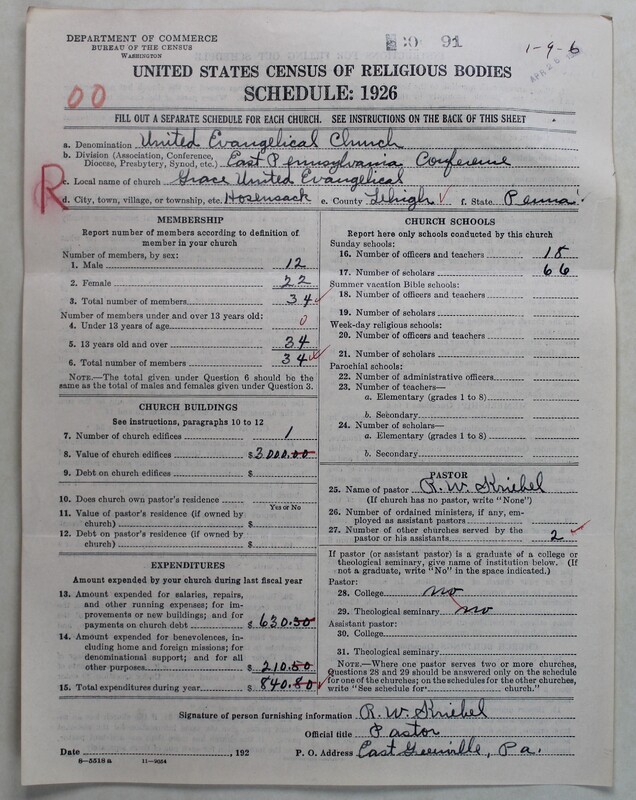 DEPARTMENT OF COMMERCE
BUREAU OF THE CENSUS
WASHINGTON
91
1-9-6
UNITED STATES CENSUS OF RELIGIOUS BODIES
SCHEDULE: 1926
00
FILL OUT A SEPARATE SCHEDULE FOR EACH CHURCH. SEE INSTRUCTIONS ON THE BACK OF THIS SHEET
a. Denomination United Evangelical Church
b. Division (Association, Conference, Diocese, Presbytery, Synod, etc.) East Pennsylvania Conference
R
c. Local name of church Grace United Evangelical
d. City, town, village, or township, etc. Hosensack e. County Lehigh f. State Penna.
MEMBERSHIP
Report number of members according to definition of
member in your church
Number of members, by sex:
1. Male 12
2. Female 22
3. Total number of members 34
Number of members under and over 13 years old:
4. Under 13 years of age 0
5. 13 years old and over 34
6. Total number of members 34
NOTE.—The total given under Question 6 should be the
same as the total of males and females given under Question 3.
CHURCH BUILDINGS
See instructions, paragraphs 10 to 12
7. Number of church edifices 1
8. Value of church edifices $3000.00
9. Debt on church edifices $
10. Does church own pastor's residence
Yes or No
11. Value of pastor's residence (if owned by
church) $
12. Debt on pastor's residence (if owned by
church) $
EXPENDITURES
Amount expended by your church during last fiscal year
13. Amount expended for salaries, repairs,
and other running expenses; for im-
provements or new buildings; and for
payments on church debt $ 630.30
14. Amount expended for benevolences,
including home and foreign missions; for
denominational support; and for all
other purposes 210.50
15. Total expenditures during year $ 840.80
CHURCH SCHOOLS
Report here only schools conducted by this church
Sunday schools:
16. Number of officers and teachers 18
17. Number of scholars 66
Summer vacation Bible schools:
18. Number of officers and teachers
19. Number of scholars
Week-day religious schools:
20. Number of officers and teachers
21. Number of scholars
Parochial schools:
22. Number of administrative officers
23. Number of teachers—
a. Elementary (grades 1 to 8)
b. Secondary
24. Number of scholars—
a. Elementary (grades 1 to 8)
b. Secondary
PASTOR
25. Name of pastor R. W. Kriebel
(If church has no pastor, write "None")
26. Number of ordained ministers, if any, em-
ployed as assistant pastors
27. Number of other churches served by the
pastor or his assistants 2
If pastor (or assistant pastor) is a graduate of a college or
theological seminary, give name of institution below. (If
not a graduate, write "No" in the space indicated.)
Pastor:
28. College no
29. Theological seminary no
Assistant pastor:
30. College
31. Theological seminary
NOTE.—Where one pastor serves two or more churches,
Questions 28 and 29 should be answered only on the schedule
for one of the churches; on the schedules for the other churches,
write "See schedule for church."
Signature of person furnishing information R. W. Kriebel
Official title Pastor
Date , 192 P. O. Address East Greenville, Pa.
8—5518 a 11—9054